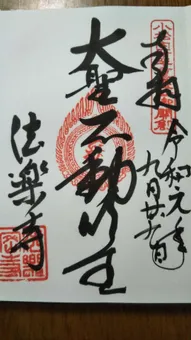 奉拝
令和元年
九月廿五日
大聖不動明王
法楽寺